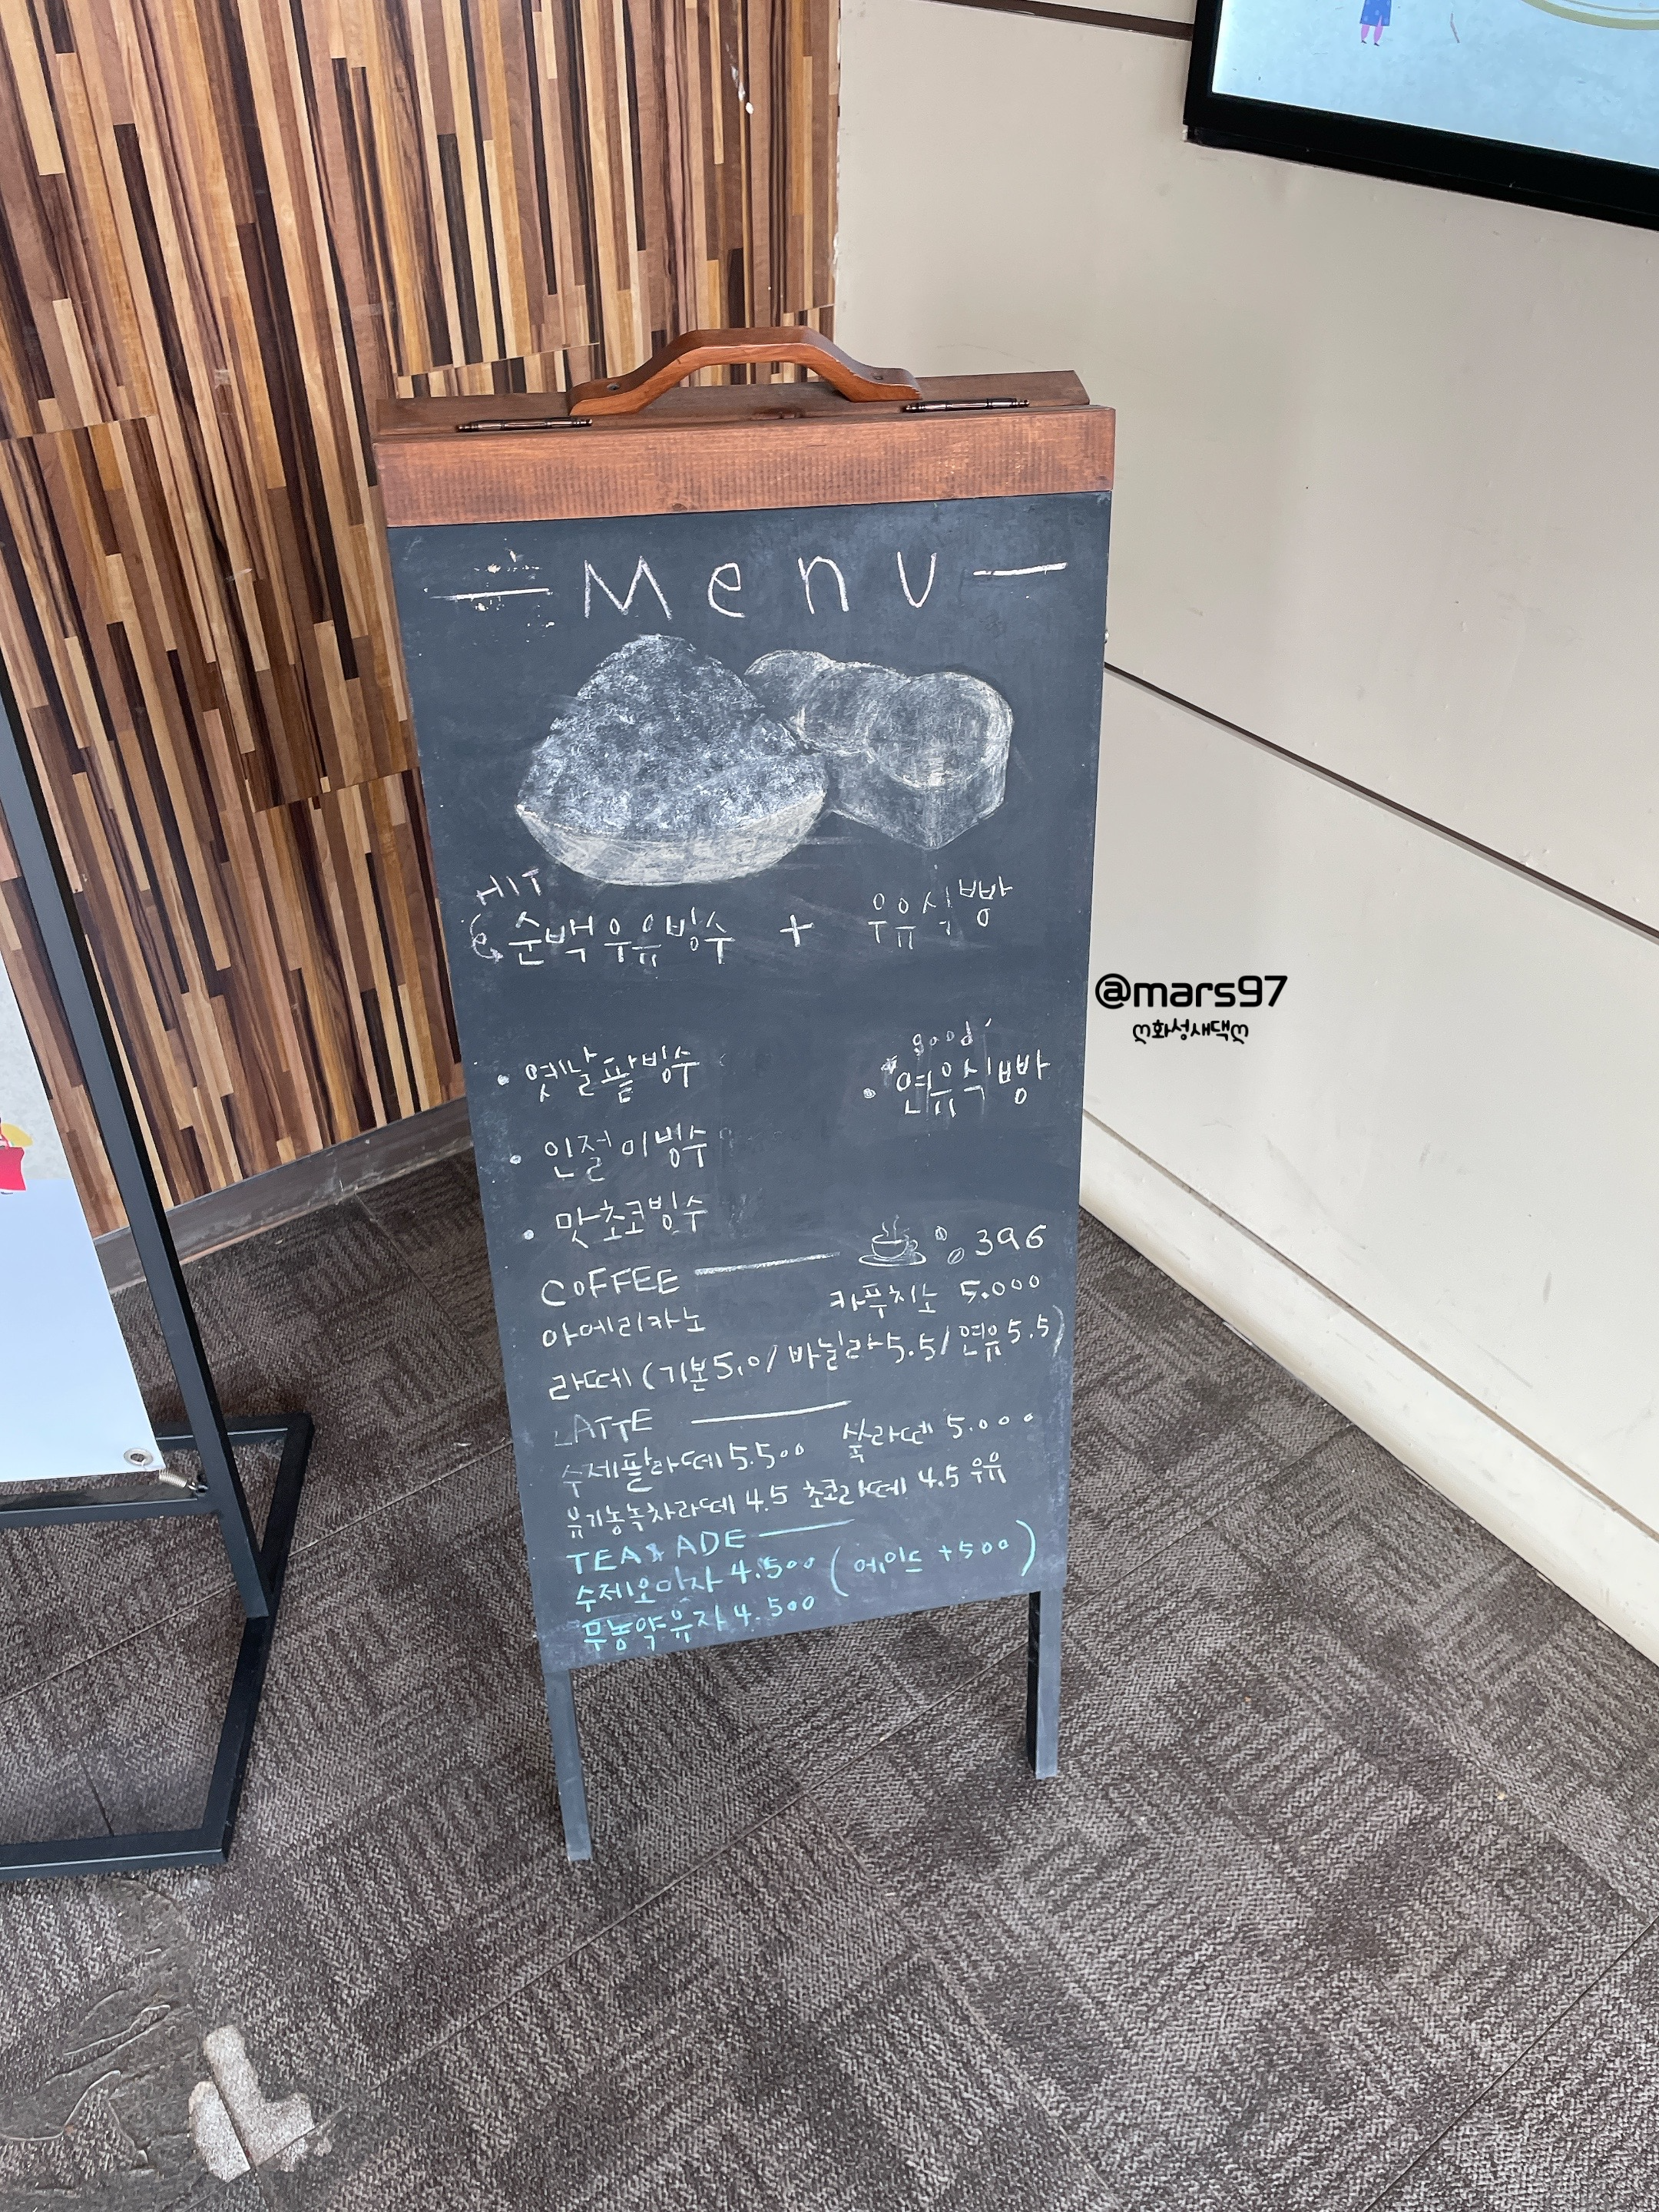 Menu
HIT
순백우유빙수 + 우유식빵
good
· 옛날팥빙수
· 연유식빵
· 인절미빙수
· 맛초코빙수
COFFEE 396
아메리카노 카푸치노 5.000
라떼 (기본5.0/ 바닐라5.5/ 연유5.5)
LATTE
수제팥라떼 5.500 쑥라떼 5.000
유기농녹차라떼 4.5 초코라떼 4.5 우유
TEA & ADE
수제오미자 4.500 (에이드 +500)
무농약유자 4.500
@mars97
ღ화성새댁ღ